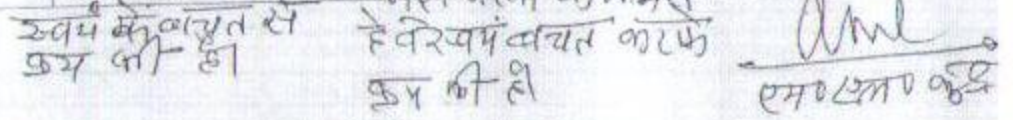 स्वयं के बचत से
क्रय की है।
है वे स्वयं बचत करके
क्रय की है
एम० एम०